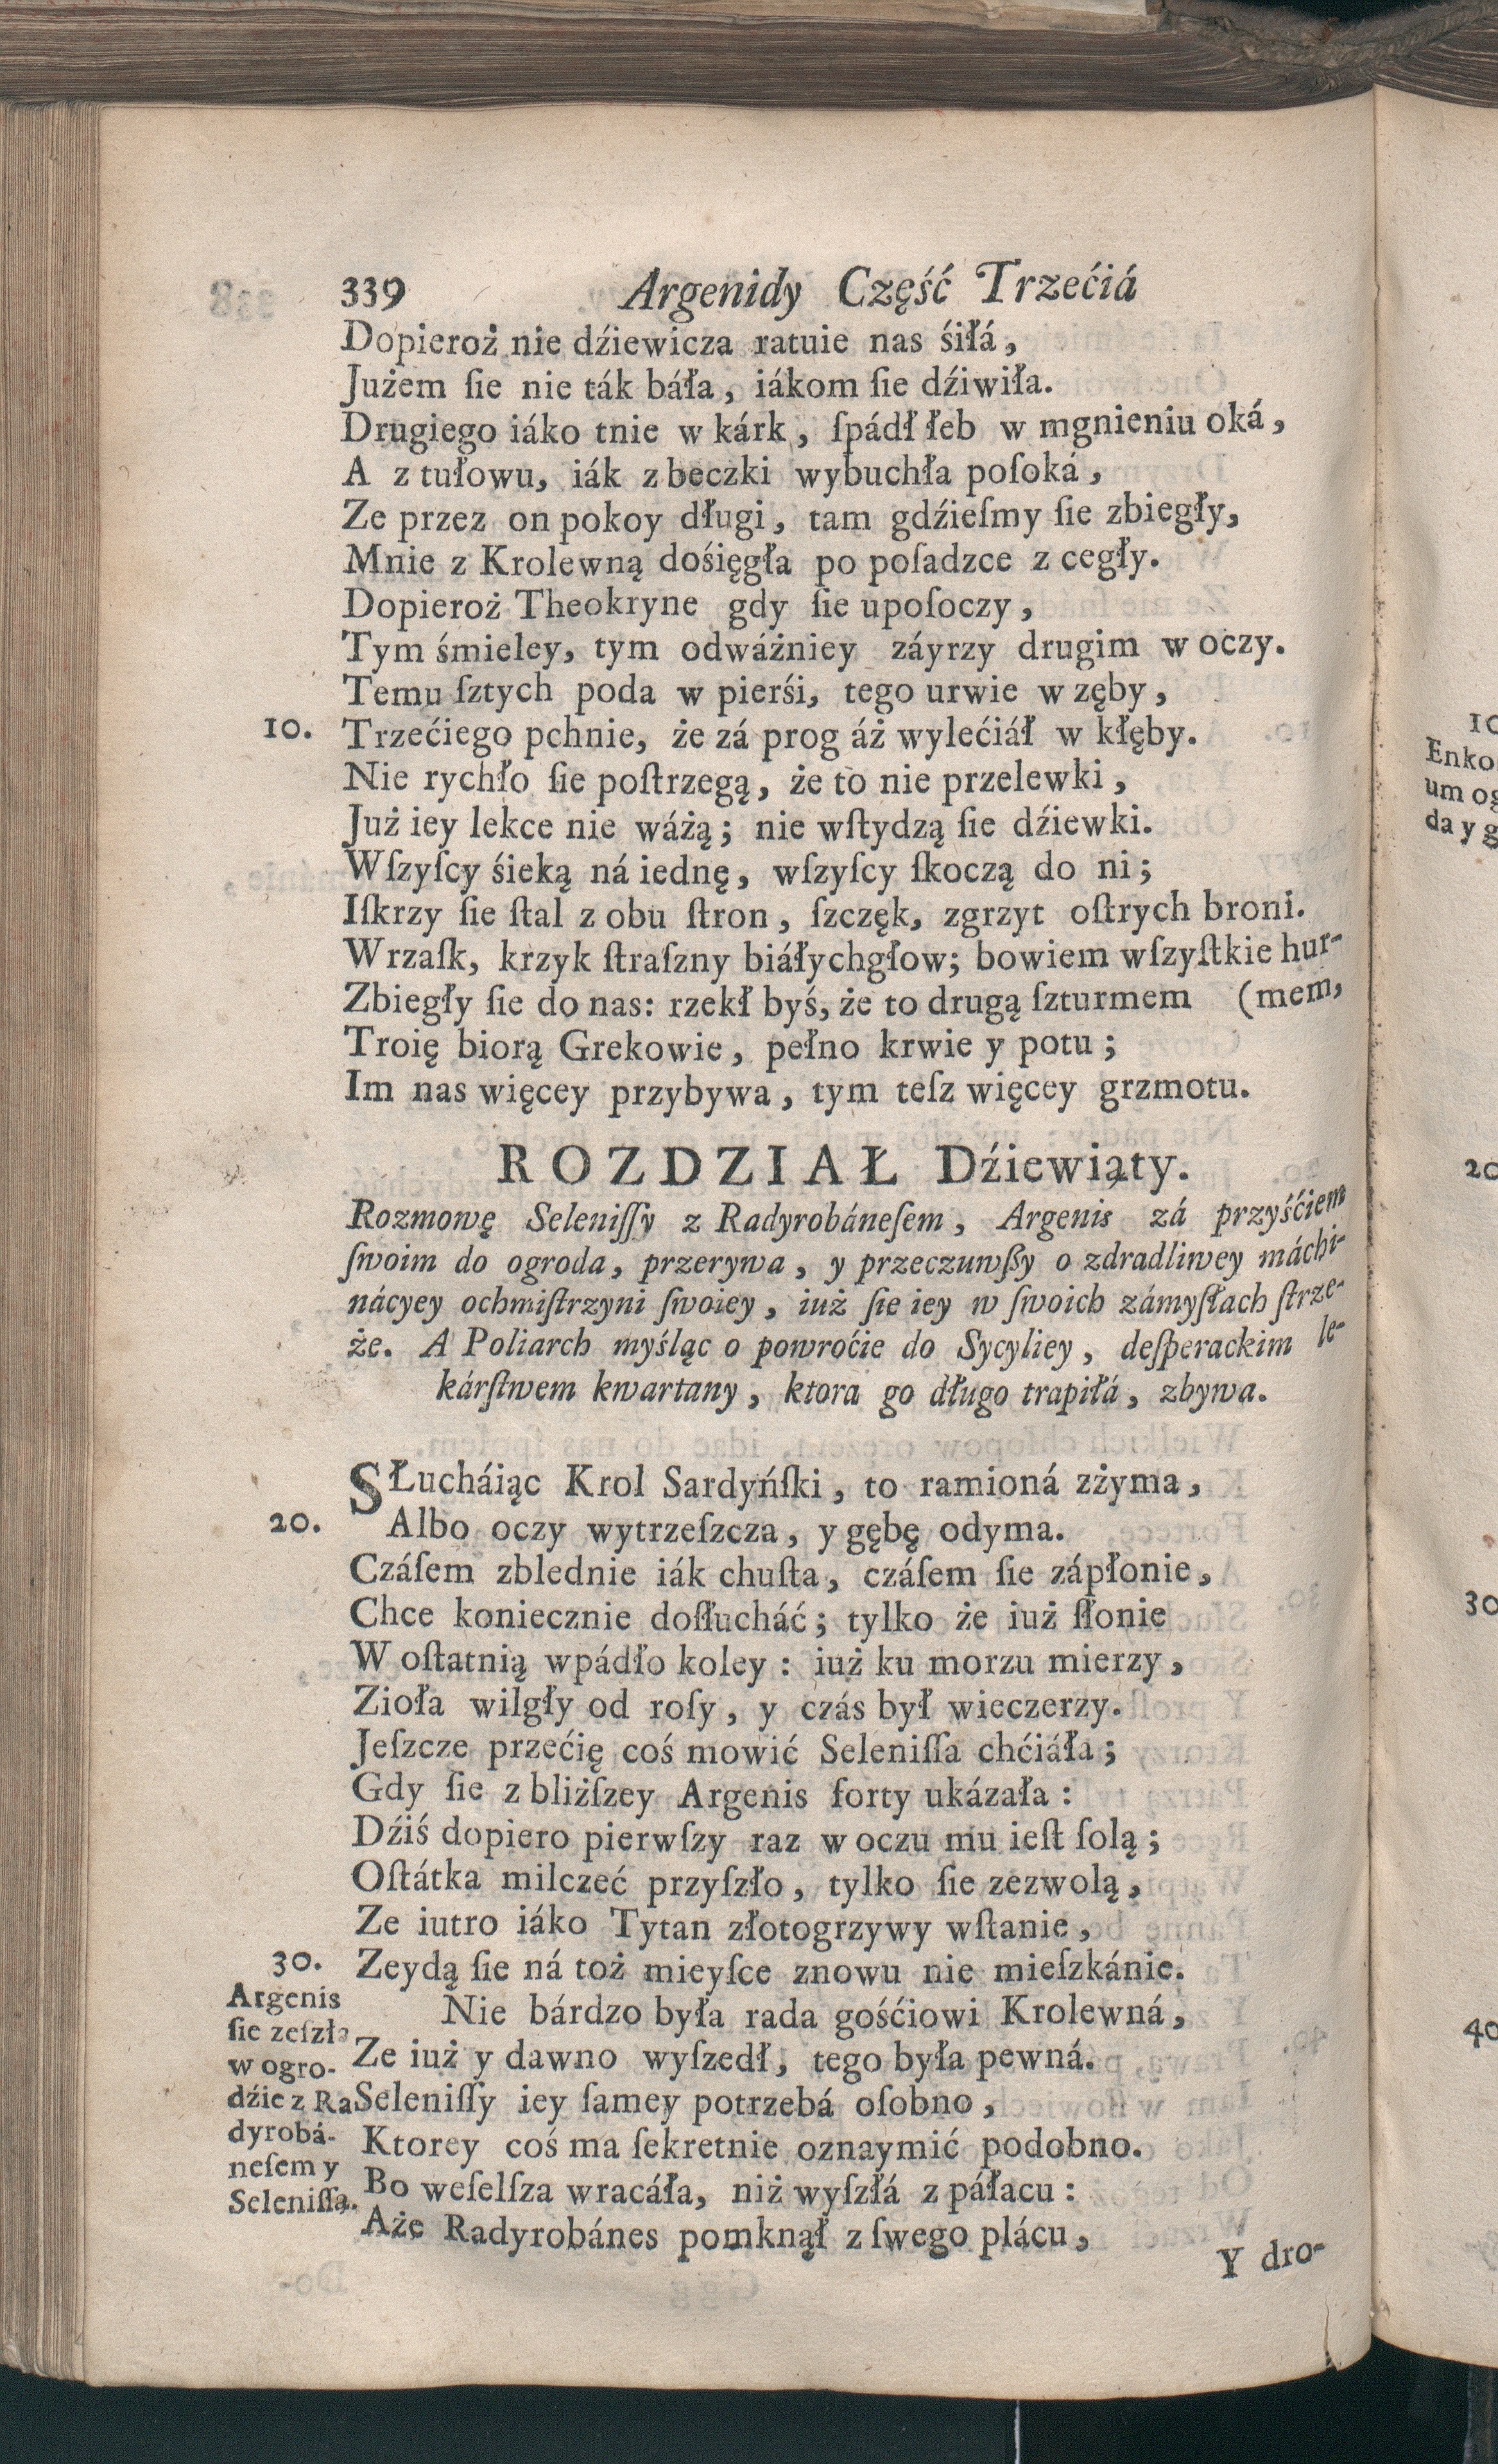 339 Argenidy Część Trzećiá
Dopieroż nie dźiewicza ratuie nas śiłá,
Jużem ſie nie ták báła, iákom ſie dźiwiła.
Drugiego iáko tnie w kárk, ſpádł łeb w mgnieniu oká,
A z tułowu, iák z beczki wybuchła poſoká,
Ze przez on pokoy długi, tam gdźieſmy ſie zbiegły,
Mnie z Krolewną dośięgła po poſadzce z cegły.
Dopieroż Theokryne gdy ſie upoſoczy,
Tym śmieley, tym odważniey záyrzy drugim w oczy.
Temu ſztych poda w pierśi, tego urwie w zęby,
10. Trzećiego pchnie, że zá prog áż wylećiáł w kłęby.
Nie rychło ſie poſtrzegą, że to nie przelewki,
Już iey lekce nie wáżą; nie wſtydzą ſie dźiewki.
Wſzyſcy śieką ná iednę, wſzyſcy ſkoczą do ni;
Iſkrzy ſie ſtal z obu ſtron, ſzczęk, zgrzyt oſtrych broni.
Wrzaſk, krzyk ſtraſzny biáłychgłow; bowiem wſzyſtkie hur-
Zbiegły ſie do nas: rzekł byś, że to drugą ſzturmem (mem,
Troię biorą Grekowie, pełno krwie y potu;
Im nas więcey przybywa, tym teſz więcey grzmotu.
ROZDZIAŁ Dźiewiąty.
Rozmowę Seleniſſy z Radyrobáneſem, Argenis zá przyśćiem
ſwoim do ogroda, przerywa, y przeczuwſzy o zdradliwey máchi-
nácyey ochmiſtrzyni ſwoiey, iuż ſie iey w ſwoich zámyſłach ſtrze-
że. A Poliarch myśląc o powroćie do Sycyliey, deſperackim le-
kárſtwem kwartany, ktora go długo trapiłá, zbywa.
SŁucháiąc Krol Sardyńſki, to ramioná zżyma,
20. Albo oczy wytrzeſzcza, y gębę odyma.
Czáſem zblednie iák chuſta, czáſem ſie zápłonie,
Chce koniecznie doſłucháć; tylko że iuż ſłonie
W oſtatnią wpádło koley: iuż ku morzu mierzy,
Zioła wilgły od roſy, y czás był wieczerzy.
Jeſzcze przećię coś mowić Seleniſſa chćiáła;
Gdy ſie z bliżſzey Argenis forty ukázała:
Dźiś dopiero pierwſzy raz w oczu mu ieſt ſolą;
Oſtátka milczeć przyſzło, tylko ſie zezwolą,
Ze iutro iáko Tytan złotogrzywy wſtanie,
30. Zeydą ſie ná toż mieyſce znowu nie mieſzkánie.
Nie bárdzo była rada gośćiowi Krolewná,
Ze iuż y dawno wyſzedł, tego była pewná.
Seleniſſy iey ſamey potrzebá oſobno,
Ktorey coś ma ſekretnie oznaymić podobno.
Bo weſelſza wracáła, niż wyſzłá z páłacu:
Aże Radyrobánes pomknął z ſwego plácu,
Y dro-
Argenis
ſie zeſzła
w ogro-
dźie z Ra
dyrobá-
neſem y
Seleniſſą.
10
Enko
um og
da y g
20
30
40